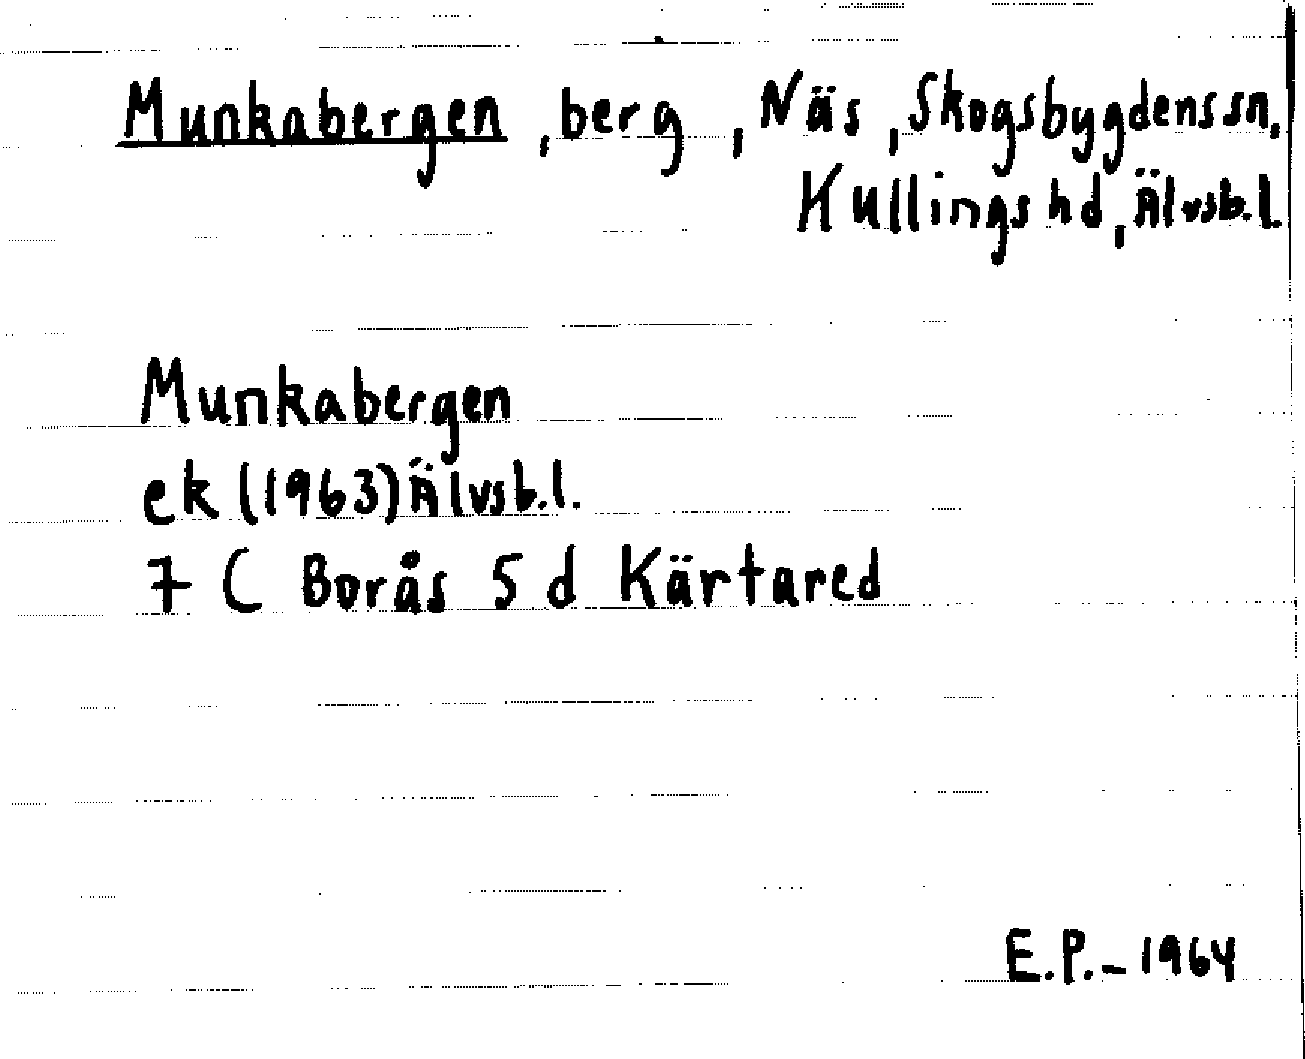 Munkabergen, berg, Näs, Skogsbygdens sn,
Kullings hd, Älvsb.l.
Munkabergen
ek (1963) Älvsb.l.
7 C Borås 5 d Kärtared
E.P.-1964